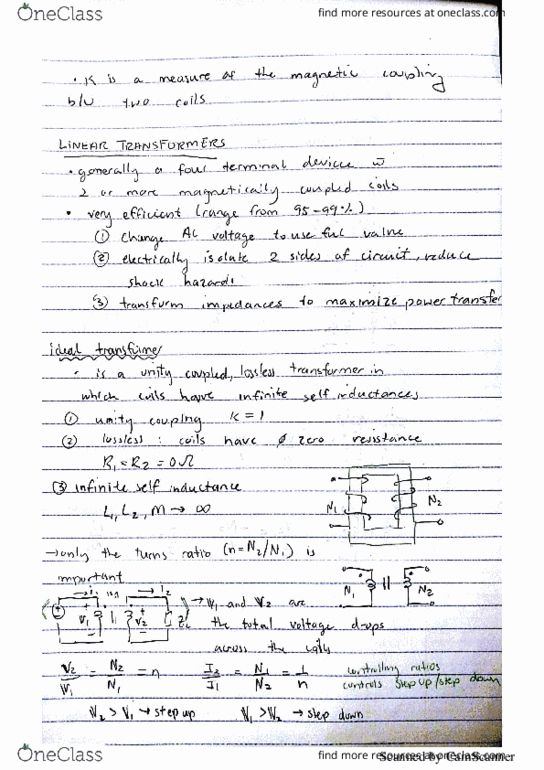 OneClass
find more resources at oneclass.com
• K is a measure of the magnetic coupling
b/w two coils
LINEAR TRANSFORMERS
• generally a four terminal device w
2 or more magnetically coupled coils
• very efficient (range from 95-99%)
① change AC voltage to useful value
② electrically isolate 2 sides of circuit, reduce
shock hazard
③ transform impedances to maximize power transfer
ideal transformer
• is a unity coupled, lossless transformer in
which coils have infinite self inductances
① unity coupling K = 1
② lossless: coils have zero resistance
R₁ = R₂ = 0Ω
③ infinite self inductance
L₁, L₂, M → ∞
N₁ N₂
→ only the turns ratio (n = N₂/N₁) is
important
N₁ N₂
→ I₁ 1:n → I₂
+ V₁ + V₂
→ V₁ and V₂ are
the total voltage drops
across the coils
V₂/V₁ = N₂/N₁ = n I₂/I₁ = N₁/N₂ = 1/n
controlling ratios
controls step up/step down
V₂ > V₁ → step up V₁ > V₂ → step down
OneClass
find more resources at oneclass.com
Scanned by CamScanner